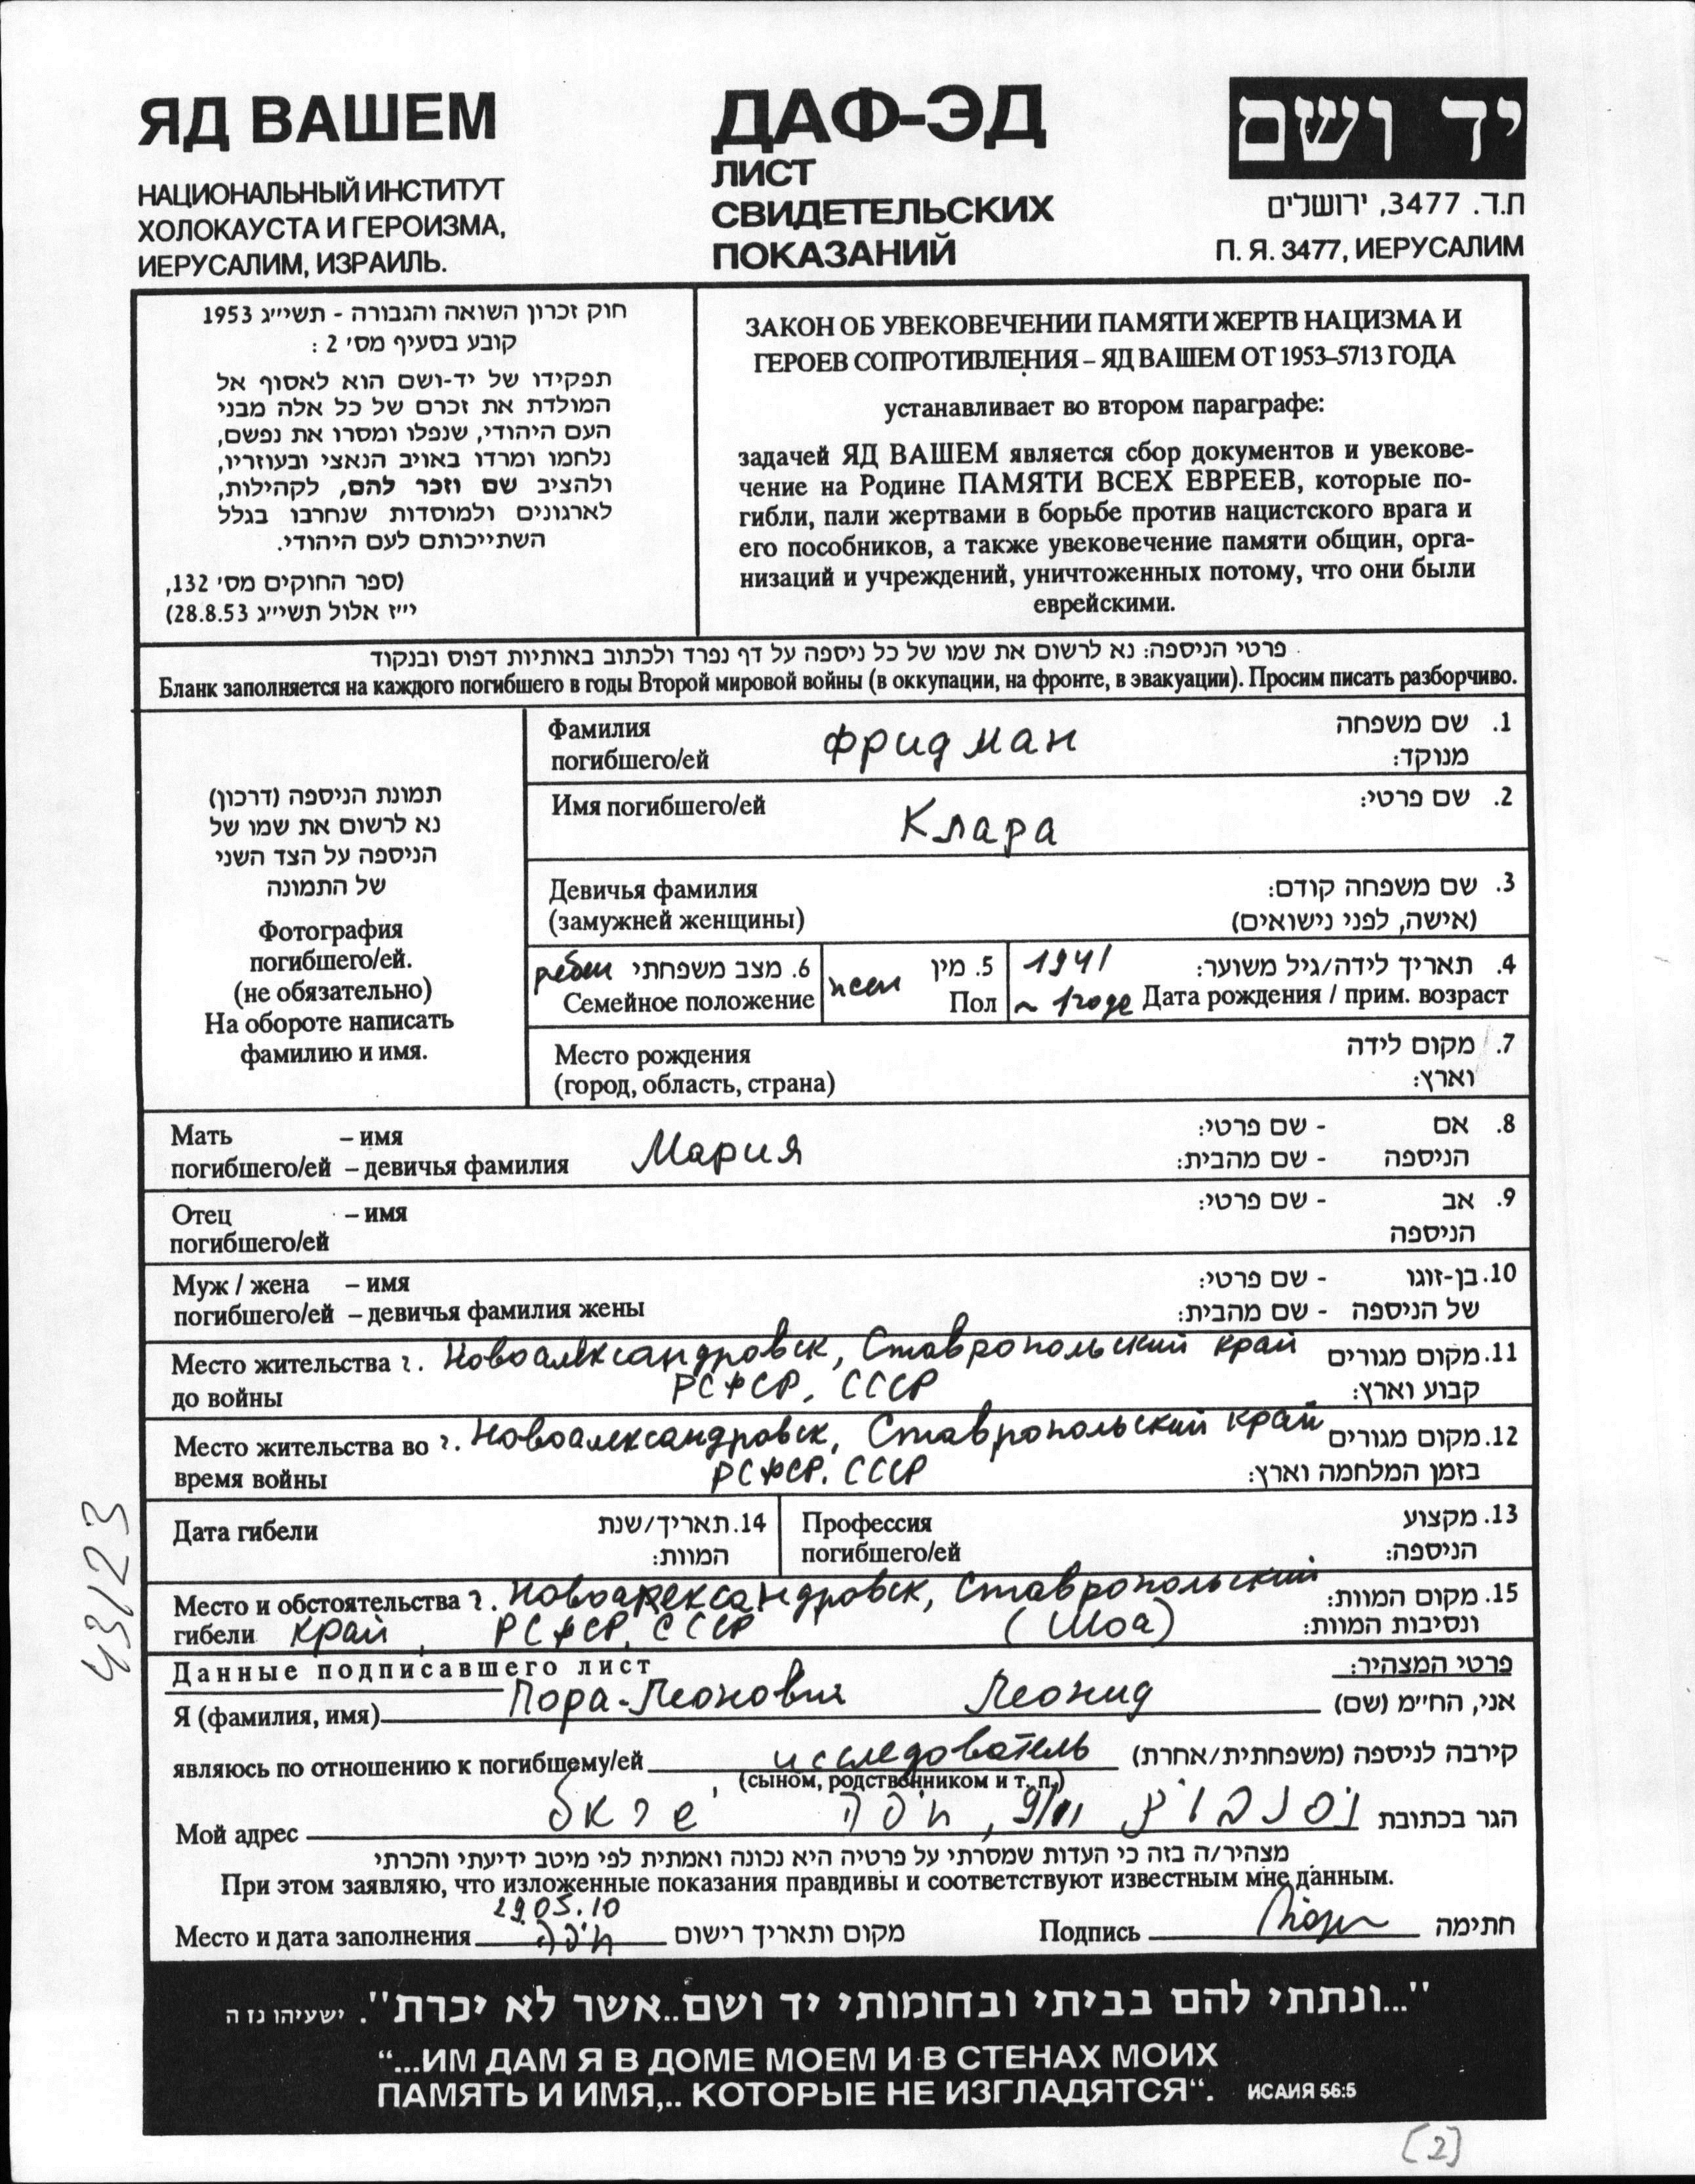 ЯД ВАШЕМ
НАЦИОНАЛЬНЫЙ ИНСТИТУТ
ХОЛОКАУСТА И ГЕРОИЗМА,
ИЕРУСАЛИМ, ИЗРАИЛЬ.
ДАФ-ЭД
ЛИСТ
СВИДЕТЕЛЬСКИХ
ПОКАЗАНИЙ
יד ושם
ת.ד. 3477, ירושלים
П. Я. 3477, ИЕРУСАЛИМ
חוק זכרון השואה והגבורה - תשי״ג 1953
קובע בסעיף מס׳ 2 :
תפקידו של יד-ושם הוא לאסוף אל
המולדת את זכרם של כל אלה מבני
העם היהודי, שנפלו ומסרו את נפשם,
נלחמו ומרדו באויב הנאצי ובעוזריו,
ולהציב שם וזכר להם, לקהילות,
לארגונים ולמוסדות שנחרבו בגלל
השתייכותם לעם היהודי.
(ספר החוקים מס׳ 132,
י״ז אלול תשי״ג 28.8.53)
ЗАКОН ОБ УВЕКОВЕЧЕНИИ ПАМЯТИ ЖЕРТВ НАЦИЗМА И
ГЕРОЕВ СОПРОТИВЛЕНИЯ – ЯД ВАШЕМ ОТ 1953–5713 ГОДА
устанавливает во втором параграфе:
задачей ЯД ВАШЕМ является сбор документов и увекове-
чение на Родине ПАМЯТИ ВСЕХ ЕВРЕЕВ, которые по-
гибли, пали жертвами в борьбе против нацистского врага и
его пособников, а также увековечение памяти общин, орга-
низаций и учреждений, уничтоженных потому, что они были
еврейскими.
פרטי הניספה: נא לרשום את שמו של כל ניספה על דף נפרד ולכתוב באותיות דפוס ובנקוד
Бланк заполняется на каждого погибшего в годы Второй мировой войны (в оккупации, на фронте, в эвакуации). Просим писать разборчиво.
תמונת הניספה (דרכון)
נא לרשום את שמו של
הניספה על הצד השני
של התמונה
Фотография
погибшего/ей.
(не обязательно)
На обороте написать
фамилию и имя.
Фамилия Фридман 1. שם משפחה
погибшего/ей מנוקד:
Имя погибшего/ей Клара 2. שם פרטי:
Девичья фамилия 3. שם משפחה קודם:
(замужней женщины) (אישה, לפני נישואים)
ребен 6. מצב משפחתי
Семейное положение
жен 5. מין
Пол
1941 4. תאריך לידה/גיל משוער:
~ 1 год Дата рождения / прим. возраст
Место рождения 7. מקום לידה
(город, область, страна) וארץ:
Мать – имя - שם פרטי: 8. אם
погибшего/ей – девичья фамилия Мария - שם מהבית: הניספה
Отец – имя - שם פרטי: 9. אב
погибшего/ей הניספה
Муж / жена – имя - שם פרטי: 10. בן-זוגו
погибшего/ей – девичья фамилия жены - שם מהבית: של הניספה
Место жительства г. Новоалександровск, Ставропольский край 11. מקום מגורים
до войны РСФСР, СССР קבוע וארץ:
Место жительства во г. Новоалександровск, Ставропольский край 12. מקום מגורים
время войны РСФСР. СССР בזמן המלחמה וארץ:
Дата гибели 14. תאריך/שנת
המוות:
Профессия 13. מקצוע
погибшего/ей הניספה:
Место и обстоятельства г. Новоалександровск, Ставропольский 15. מקום המוות:
гибели край, РСФСР, СССР (Шоа) ונסיבות המוות:
Данные подписавшего лист פרטי המצהיר:
Я (фамилия, имя) Пора-Леонович Леонид אני, הח״מ (שם)
являюсь по отношению к погибшему/ей исследователь קירבה לניספה (משפחתית/אחרת)
(сыном, родственником и т. п.)
Мой адрес 9/11, חיפה ישראל הגר בכתובת
מצהיר/ה בזה כי העדות שמסרתי על פרטיה היא נכונה ואמתית לפי מיטב ידיעתי והכרתי
При этом заявляю, что изложенные показания правдивы и соответствуют известным мне данным.
29.05.10
Место и дата заполнения חיפה מקום ותאריך רישום Подпись חתימה
"...ונתתי להם בביתי ובחומותי יד ושם..אשר לא יכרת". ישעיהו נז ה
“...ИМ ДАМ Я В ДОМЕ МОЕМ И В СТЕНАХ МОИХ
ПАМЯТЬ И ИМЯ,.. КОТОРЫЕ НЕ ИЗГЛАДЯТСЯ“. ИСАИЯ 56:5
43123
(2)